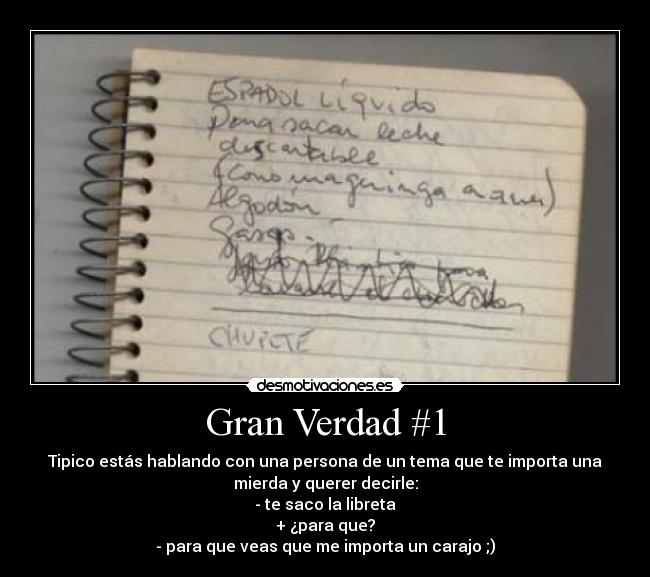 ESPADOL Líquido
para sacar leche
descartable
(como una jeringa a
Algodón
Gasas -
CHUPETE
desmotivaciones.es
Gran Verdad #1
Tipico estás hablando con una persona de un tema que te importa una
mierda y querer decirle:
- te saco la libreta
+ ¿para que?
- para que veas que me importa un carajo ;)